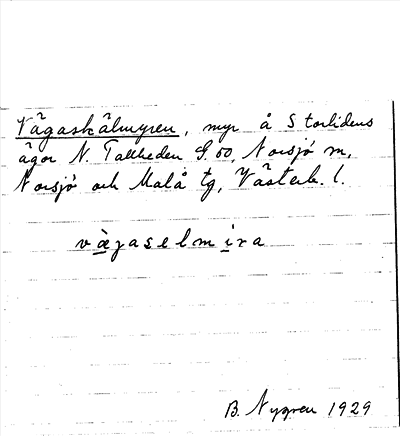 Vägaskälmyren, myr å Storlidens
ägor N. Tallheden S. 60, Norsjö sn,
Norsjö och Malå tg, Västerb. l.
vägaselmira
B. Nygren 1929